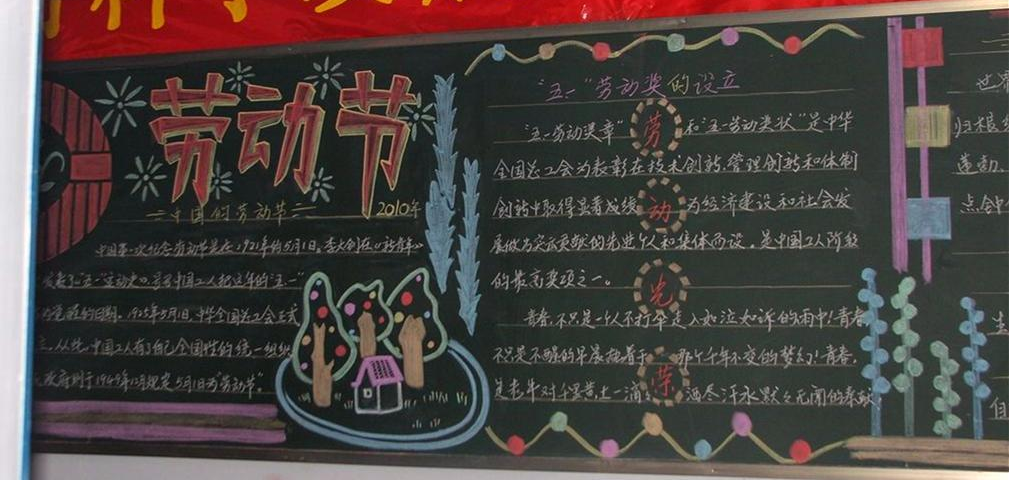 劳动节
中国的劳动节
2010年
中国第一次纪念劳动节是在1921年的5月1日。李大钊在《新青年》
发表了"五一"运动史。号召中国工人把这年的"五一"
的觉醒的日期。1925年5月1日，中华全国总工会正式
立，从此，中国工人有了自己全国性的统一组织
政府则于1949年12月规定5月1日为"劳动节"。
"五一"劳动奖的设立
"五一劳动奖章"和"五一劳动奖状"是中华
全国总工会为表彰在技术创新、管理创新和体制
创新中取得显著成绩 为经济建设和社会发
展做为突出贡献的先进个人和集体而设，是中国工人阶级
的最高奖项之一。
青春，不只是一个人不打伞走入如泣如诉的雨中！青春
不只是不醒的早晨 那个千年不变的梦幻！青春，
是老牛对 土一滴 洒尽汗水默々无闻的奉献
劳
动
光
荣
世界
归根
运动、
点钟